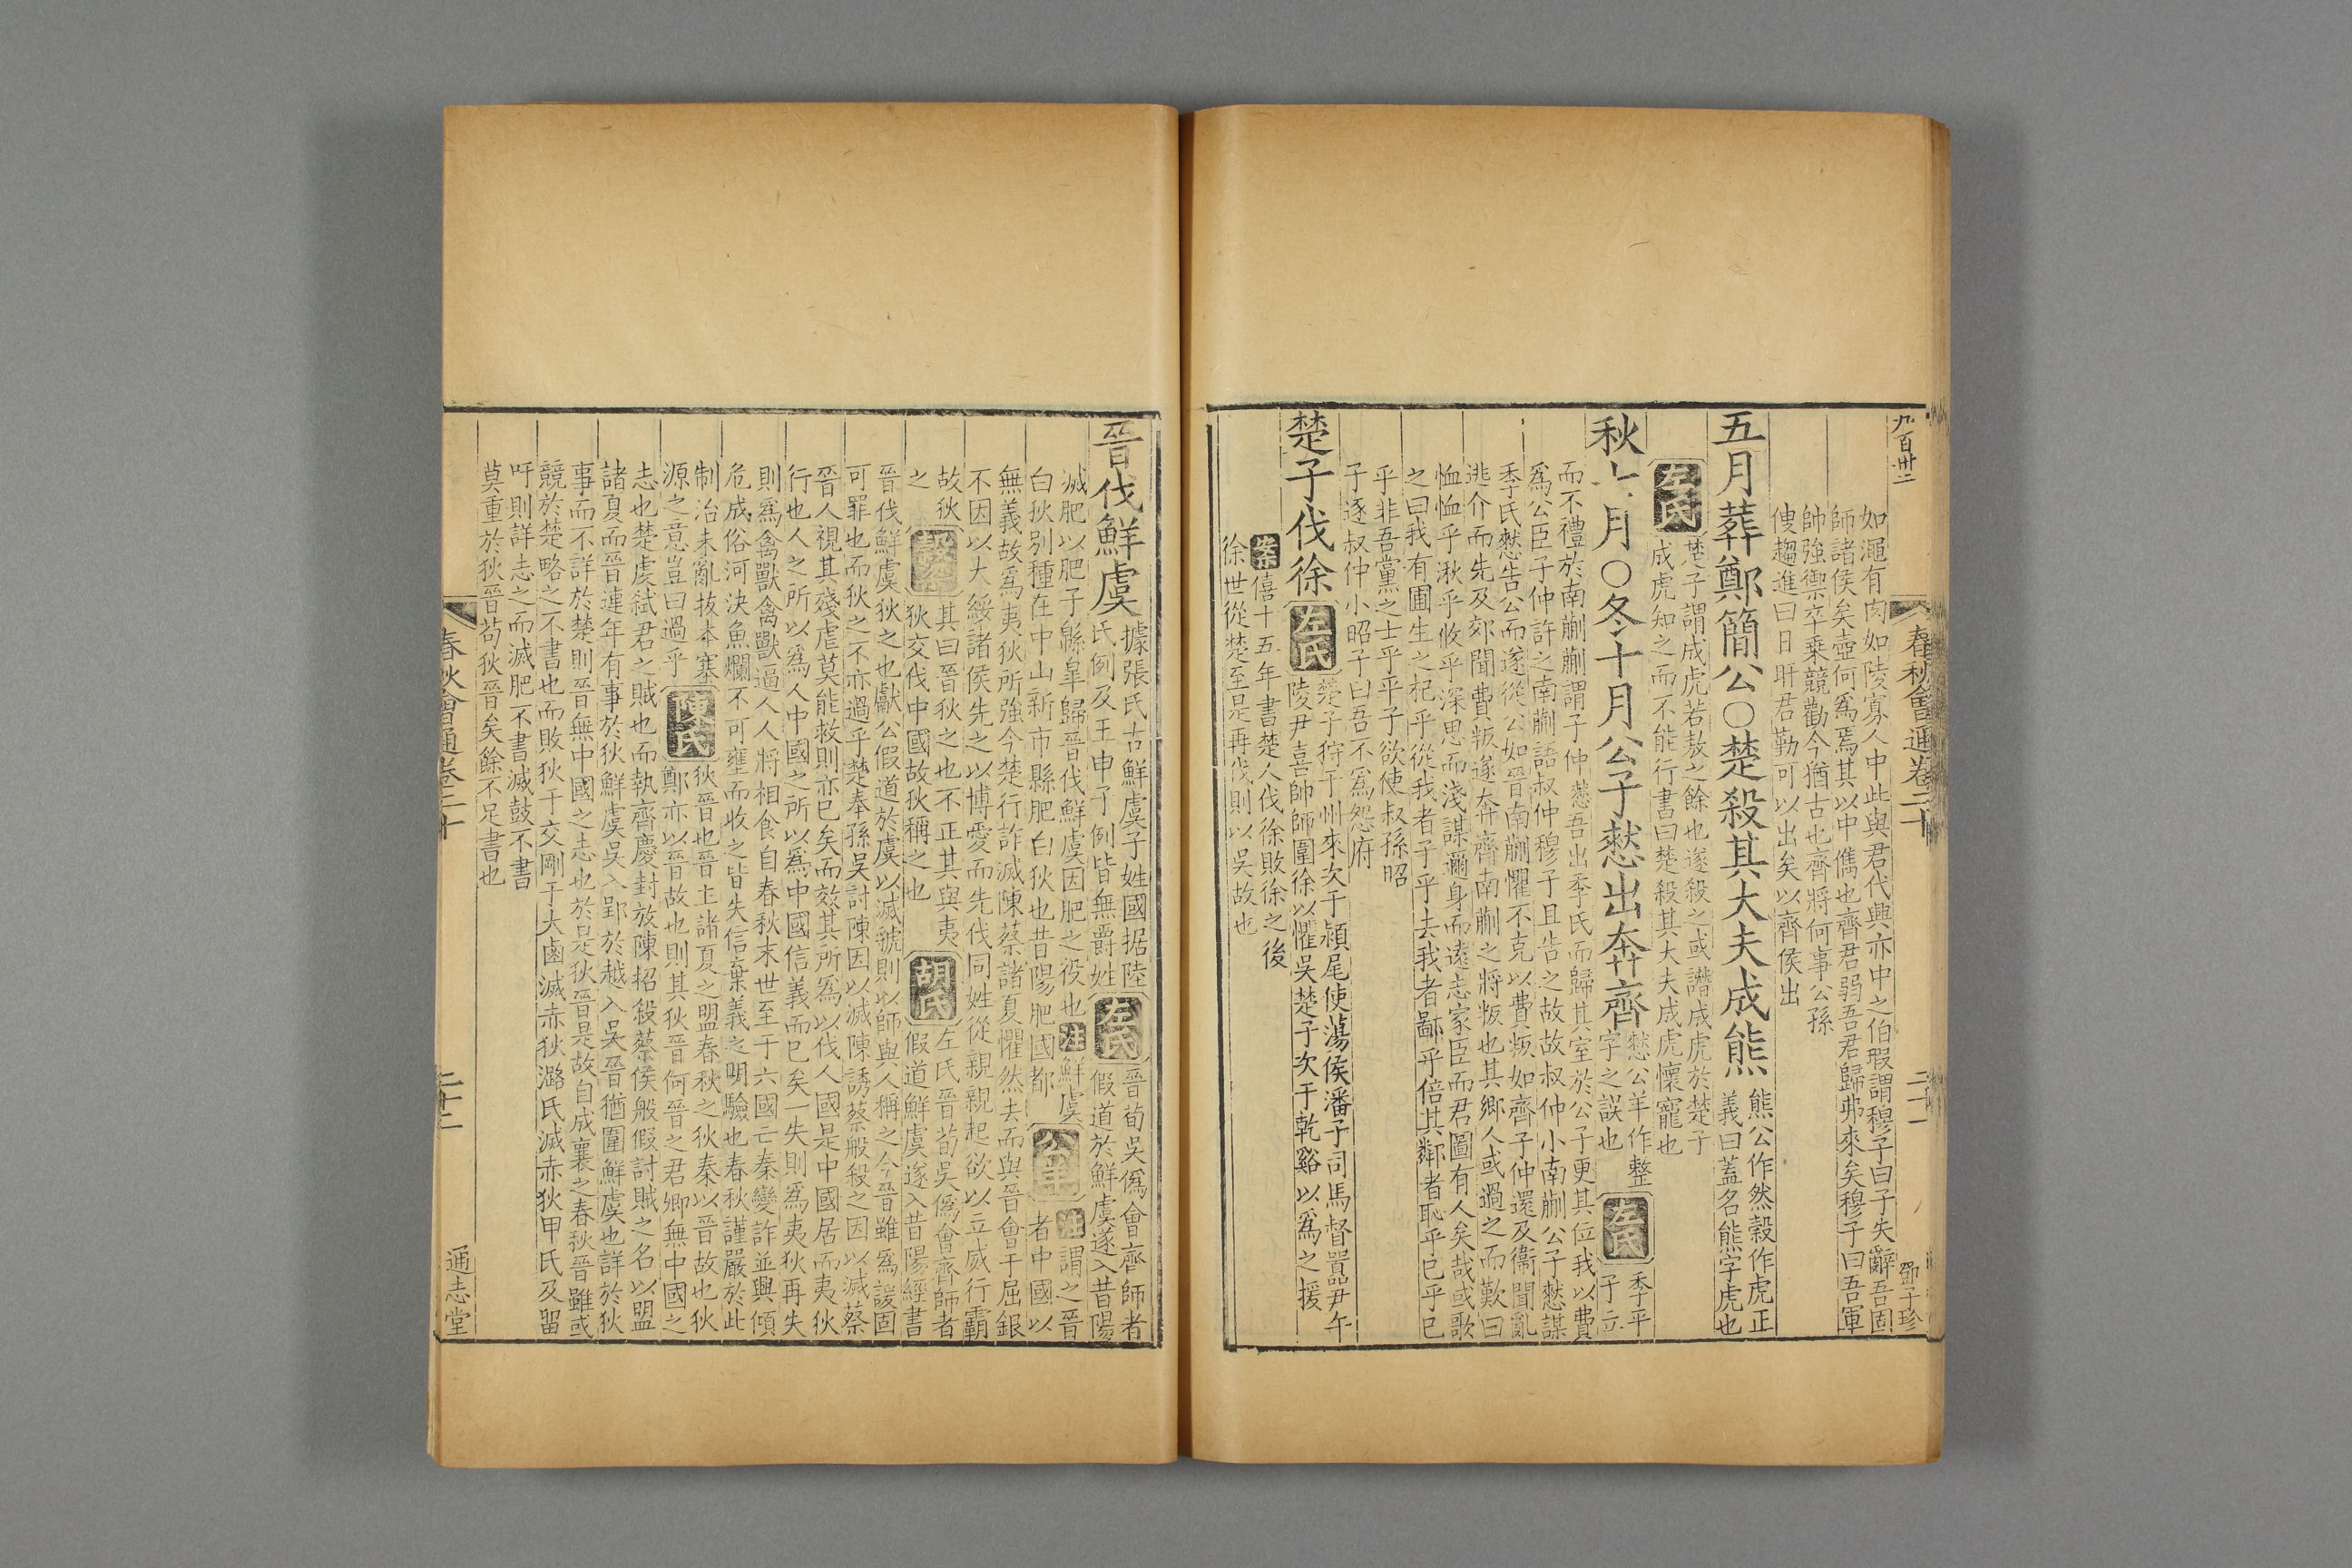 九百卅二
春秋會通卷二十
二十一
鄧子珍
如澠有肉如陵寡人中此與君代興亦中之伯瑕謂穆子曰子失辭吾固
師諸侯矣壺何爲焉其以中儁也齊君弱吾君歸弗來矣穆子曰吾軍
帥強禦卒乗競勸今猶古也齊將何事公孫
傁趨進曰日旰君勤可以出矣以齊侯出
五月葬鄭簡公〇楚殺其大夫成熊
熊公作然穀作虎正
義曰蓋名熊字虎也
左氏
楚子謂成虎若敖之餘也遂殺之或譖成虎於楚子
成虎知之而不能行書曰楚殺其大夫成虎懷寵也
秋 月〇冬十月公子憖出奔齊
憖公羊作整
字之誤也
左氏
季平
子立
而不禮於南蒯蒯謂子仲憖吾出季氏而歸其室於公子更其位我以費
爲公臣子仲許之南蒯語叔仲穆子且告之故故叔仲小南蒯公子憖謀
季氏憖告公而遂從公如晉南蒯懼不克以費叛如齊子仲還及衞聞亂
逃介而先及郊聞費叛遂奔齊南蒯之將叛也其鄉人或過之而歎曰
恤恤乎湫乎攸乎深思而淺謀邇身而遠志家臣而君圖有人矣哉或歌
之曰我有圃生之杞乎從我者子乎去我者鄙乎倍其鄰者恥乎已乎已
乎非吾黨之士乎平子欲使叔孫昭
子逐叔仲小昭子曰吾不爲怨府
楚子伐徐
左氏
楚子狩于州來次于潁尾使蕩侯潘子司馬督嚻尹午
陵尹喜帥師圍徐以懼吳楚子次于乾谿以爲之援
案
僖十五年書楚人伐徐敗徐之後
徐世從楚至是再伐則以吳故也
晉伐鮮虞
據張氏古鮮虞子姓國据陸
氏例及王申子例皆無爵姓
左氏
晉荀吳僞會齊師者
假道於鮮虞遂入昔陽
滅肥以肥子緜皐歸晉伐鮮虞因肥之役也
注
鮮虞
白狄别種在中山新市縣肥白狄也昔陽肥國都
公羊
注
謂之晉
者中國以
無義故爲夷狄所強今楚行詐滅陳蔡諸夏懼然去而與晉會于屈銀
不因以大綏諸侯先之以博愛而先伐同姓從親親起欲以立威行霸
故狄
之
穀梁
其曰晉狄之也不正其與夷
狄交伐中國故狄稱之也
胡氏
左氏晉荀吳僞會齊師者
假道鮮虞遂入昔陽經書
晉伐鮮虞狄之也獻公假道於虞以滅虢則以師與人稱之今晉雖爲諼固
可罪也而狄之不亦過乎楚奉孫吳討陳因以滅陳誘蔡般殺之因以滅蔡
晉人視其殘虐莫能救則亦已矣而效其所爲以伐人國是中國居而夷狄
行也人之所以爲人中國之所以爲中國信義而已矣一失則爲夷狄再失
則爲禽獸禽獸逼人人將相食自春秋末世至于六國亡秦變詐並興傾
危成俗河決魚爛不可壅而收之皆失信棄義之明驗也春秋謹嚴於此
制治未亂抜本塞
源之意豈曰過乎
陳氏
狄晉也晉主諸夏之盟春秋之狄秦以晉故也狄
鄭亦以晉故也則其狄晉何晉之君卿無中國之
志也楚虔弑君之賊也而執齊慶封放陳招殺蔡侯般假討賊之名以盟
諸夏而晉連年有事於狄鮮虞吳入郢於越入吳晉猶圍鮮虞也詳於狄
事而不詳於楚則晉無中國之志也於是狄晉是故自成襄之春秋晉雖或
競於楚略之不書也而敗狄于交剛于大鹵滅赤狄潞氏滅赤狄甲氏及留
吁則詳志之而滅肥不書滅鼓不書
莫重於狄晉苟狄晉矣餘不足書也
春秋會通卷二十
二十二
通志堂